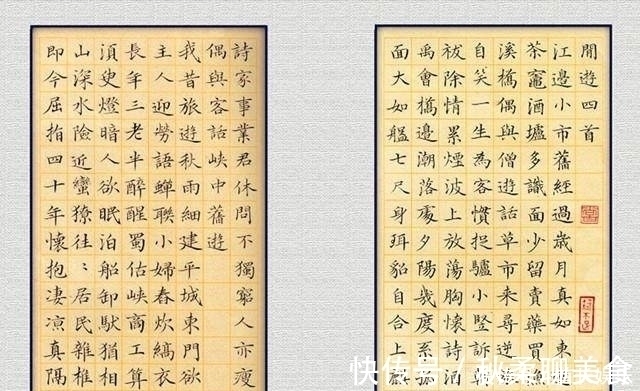 閒遊四首
江邊小市舊經過歲月真如東
茶竈酒壚多識面少留賣藥買
溪橋偶與僧遊話草市來尋逆
自笑一生為客慣捉驢小豎訴
祓除情累煙波上放蕩胸懷詩
禹會橋邊潮落處夕陽幾度系
面大如七尺身珥貂自合上
詩家事業君休問不獨窮人亦瘦
偶與客話峽中舊遊
我昔旅遊秋雨細建平城東門欲
主人迎勞語蟬聯小婦春炊縞衣
長年三老半醉醒蜀估峽商工算
湏臾燈暗人欲眠泊船卸馱猶相
山深水險近蠻獠往〻居民雜椎
即今屈指四十年懷抱凄凉真隔
快传号